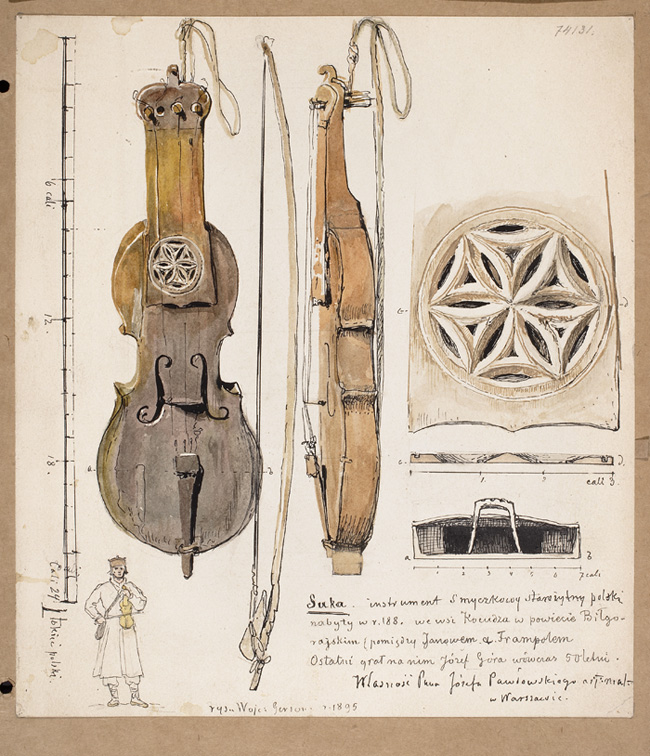 74131.
6 cali
12.
18.
Cali 24
łokieć polski.
a
b
c
d
c.
d.
1.
2
cali 3.
a
b
1 2 3 4 5 6 7 cali
Suka. instrument Smyczkowy starożytny polski
nabyty w r. 188. we wsi Kocudza w powiecie Biłgo-
rajskim / pomiędzy Janowem a Frampolem
Ostatni grał na nim Józef Góra wówczas 50 letni.
Własność Pana Józefa Pawłowskiego
w Warszawie.
rys. Wojc. Gerson r. 1895